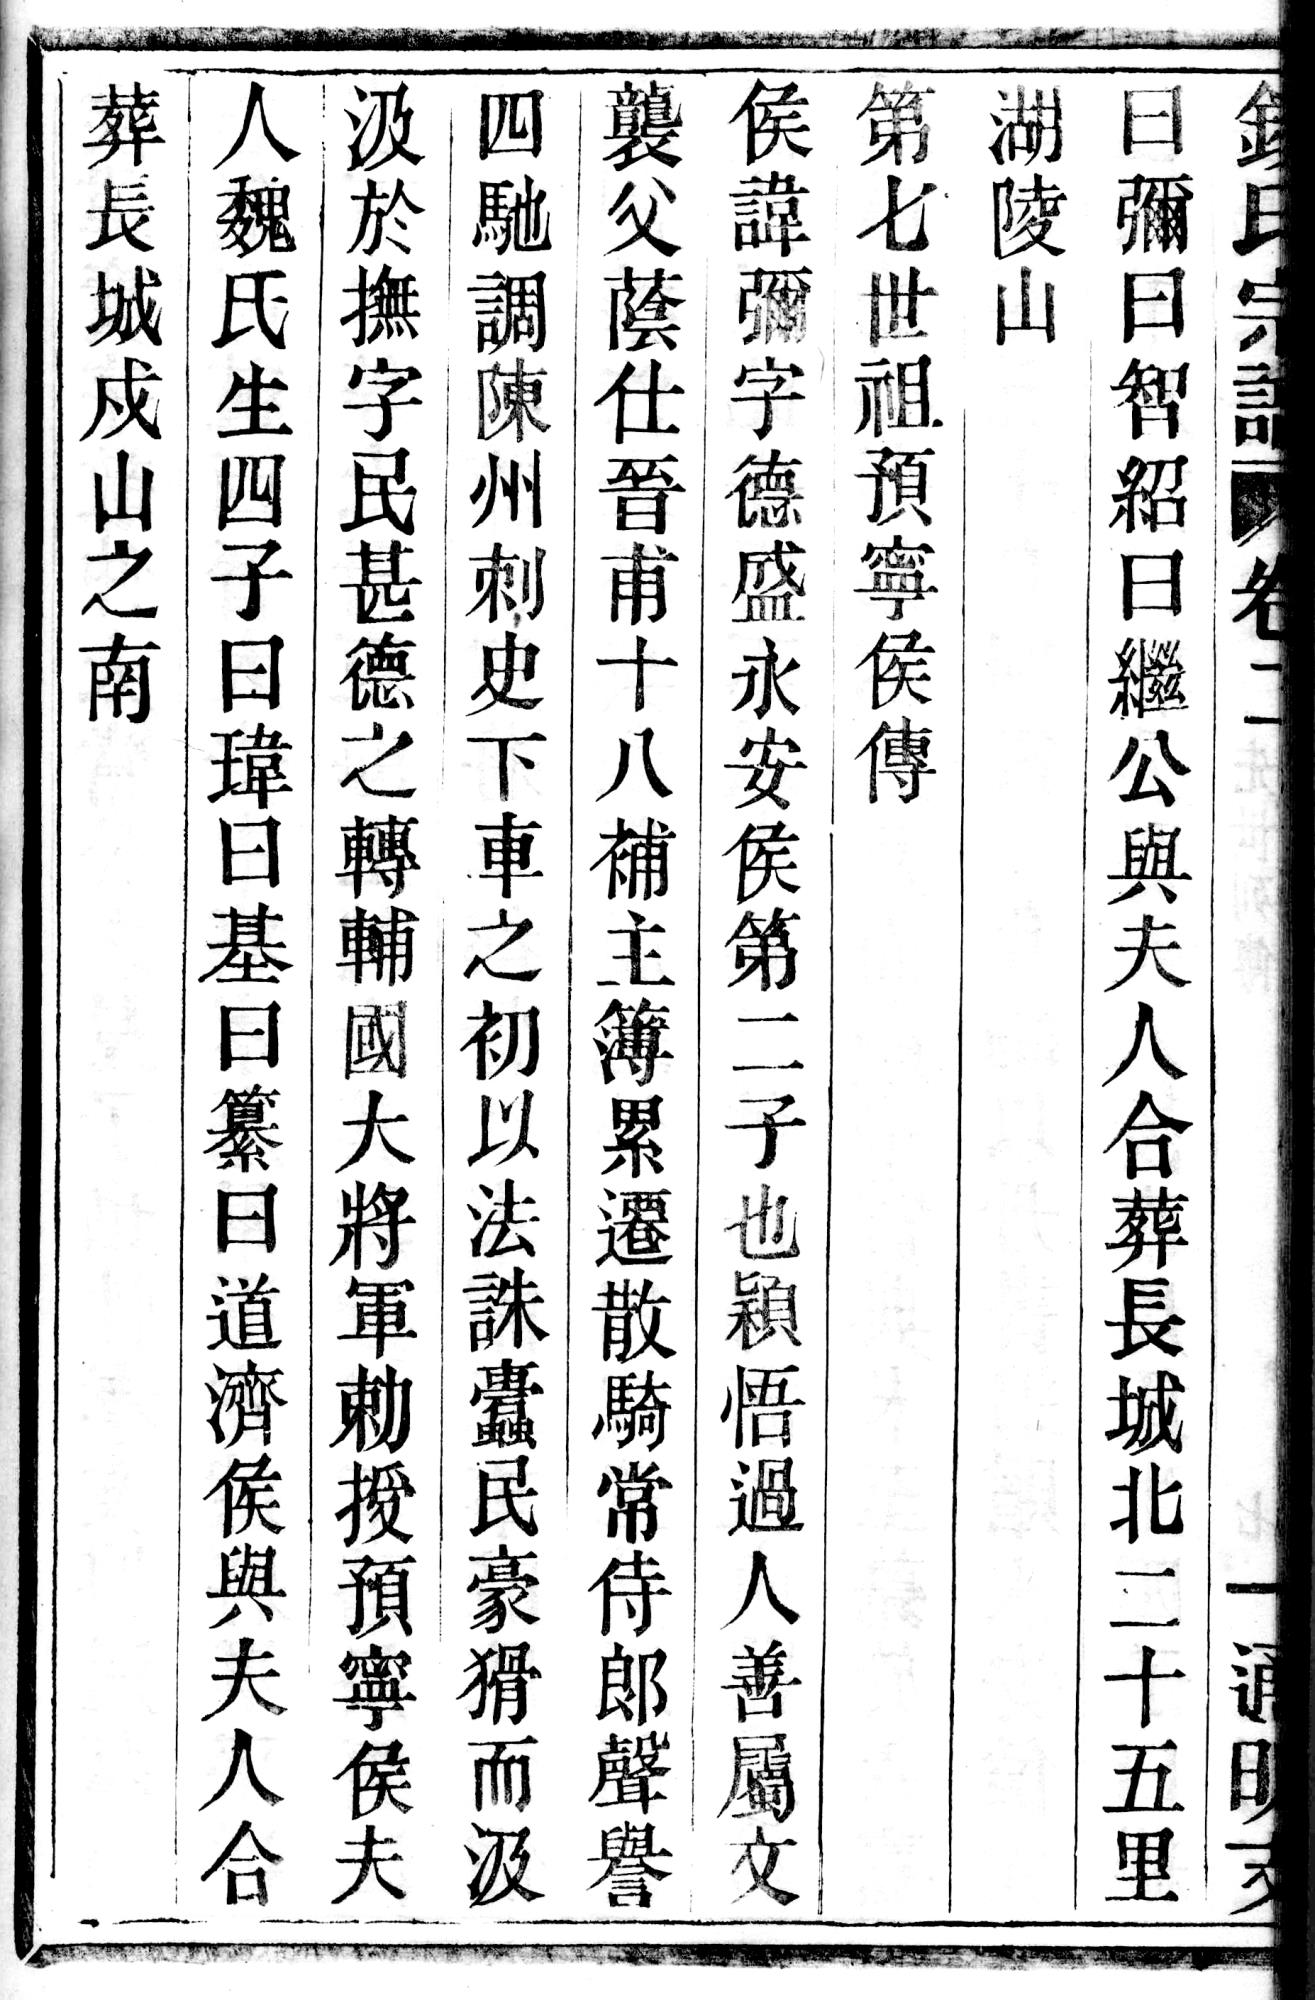 錢氏宗譜 卷二 一 通明
曰彌曰智紹曰繼公與夫人合葬長城北二十五里
湖陵山
第七世祖預寧侯傳
侯諱彌字德盛永安侯第二子也穎悟過人善屬文
襲父蔭仕晉甫十八補主簿累遷散騎常侍郎聲譽
四馳調陳州刺史下車之初以法誅蠹民豪猾而汲
汲於撫字民甚德之轉輔國大將軍勅授預寧侯夫
人魏氏生四子曰瑋曰基曰纂曰道濟侯與夫人合
葬長城戍山之南